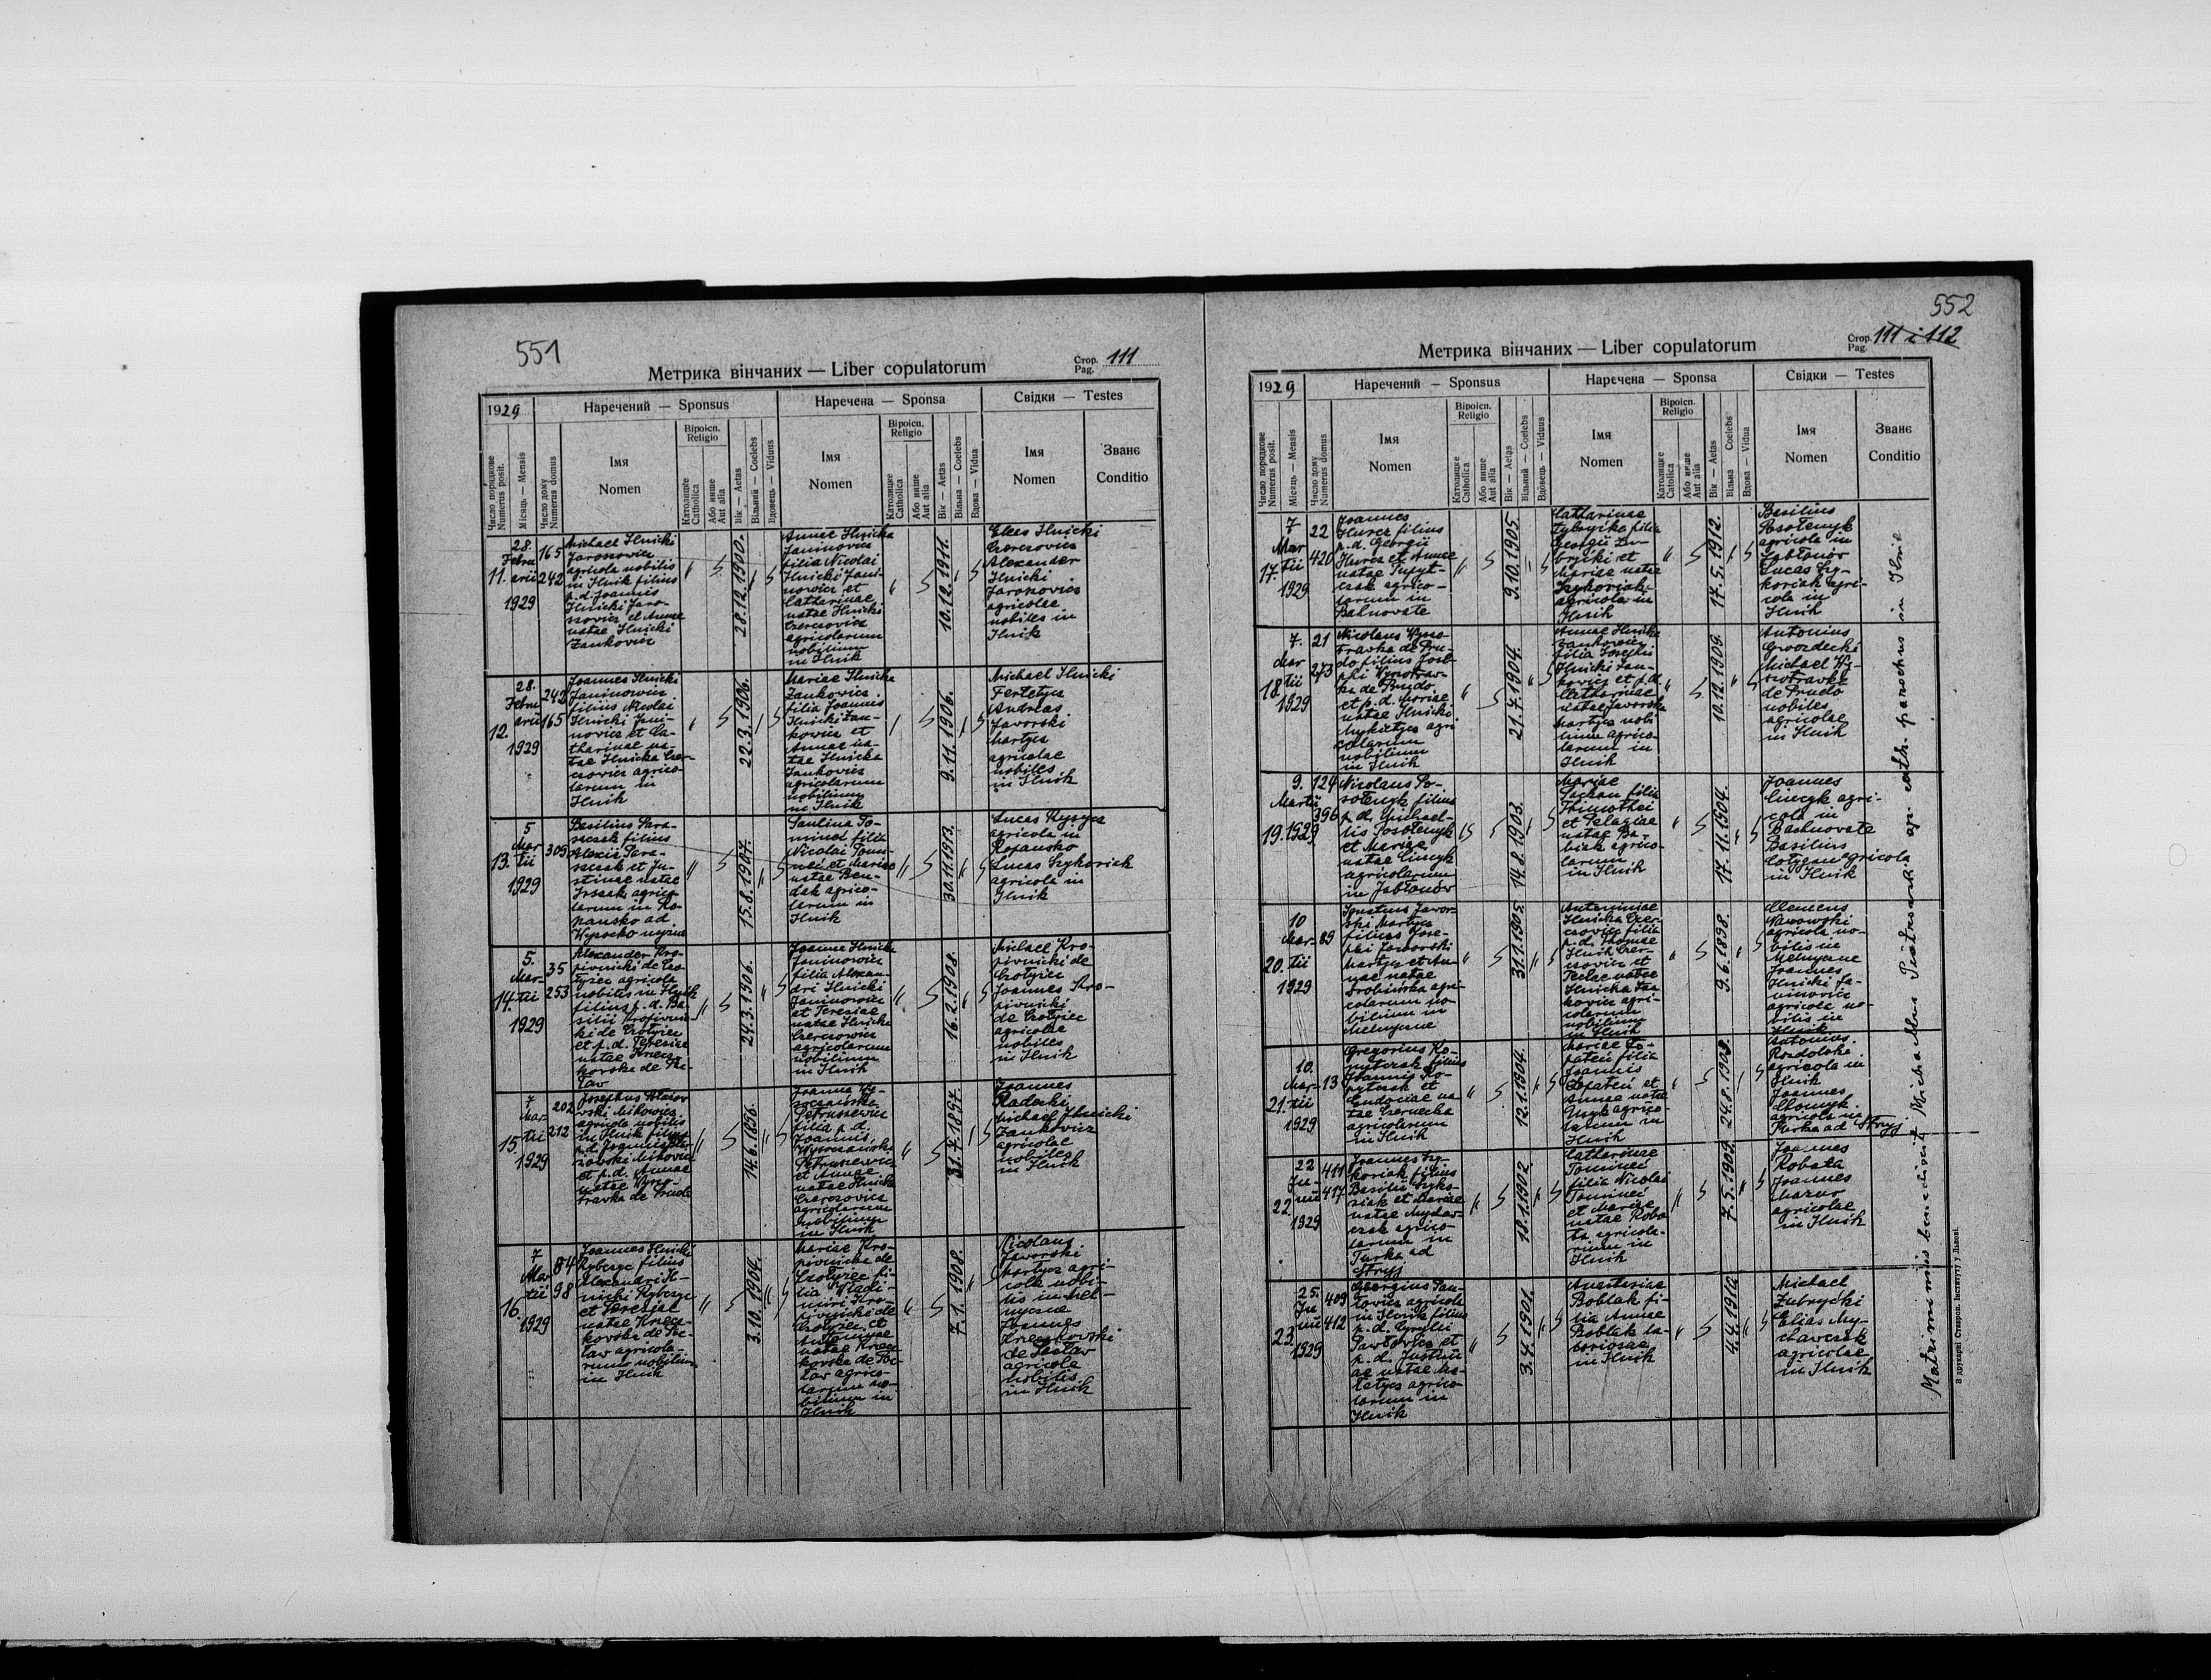 551
Метрика вінчаних — Liber copulatorum
Стор. Pag. 111
1929
Наречений — Sponsus
Наречена — Sponsa
Свідки — Testes
Число порядкове Numerus posit.
Місяць — Mensis
Число дому Numerus domus
Імя Nomen
Віроісп. Religio
Католицке Catholica
Або инше Aut alia
Вік — Aetas
Вільний — Coelebs
Вдовець — Viduus
Імя Nomen
Віроісп. Religio
Католицке Catholica
Або инше Aut alia
Вік — Aetas
Вільна — Coelebs
Вдова — Vidua
Імя Nomen
Званє Conditio
11.
28.
Febru
arii
1929
165
242
Michael Ilnicki
agricola nobilis
in Ilnik filius
p. d. Joannis
Ilnicki Jaro-
szowicz et Annae
natae Ilnicki
Zankovicz
28.12.1900.
Annae Ilnicka
Janinovicz
filia Nicolai
Ilnicki Jani-
novicz et
Catharinae
natae Ilnicki
Czerczovicz
agricolarum
nobilium
in Ilnik
10.12.1911.
Ilnicki
Czerczovicz
Alexander
Ilnicki
agricolae
nobiles in
Ilnik
12.
28.
Febru
arii
1929
242
165
Joannes Ilnicki
Janinowicz
filius Nicolai
Ilnicki Jani-
novicz et Ca-
tharinae na-
tae Ilnicka Czer-
czovicz agrico-
larum in
Ilnik
22.3.1906.
Mariae Ilnicka
Zankovicz
filia Joannis
Ilnicki Zan-
kovicz et
Annae na-
tae Ilnicka
Jankovicz
agricolarum
nobilium
in Ilnik
9.11.1906.
Michael Ilnicki
Andreas
Javorski
Martycz
agricolae
nobiles
in Ilnik
13.
5
Mar
tii
1929
309
Basilius Para-
szczak filius
Alexii Para-
szczak et Ju-
stinae natae
agrico-
larum in Ro-
pansko ad
Wysocko nyżne
15.8.1907.
Paulina To-
minec filia
Nicolai Tomi-
nec et Mariae
natae Ben-
dak agrico-
larum in
Ilnik
30.11.1913.
Lucas
agricola in
Ropansko
Lucas
agricola in
Ilnik
14.
5.
Mar-
tii
1929
35
253
Alexander Kro-
pivnicki de Czo-
tyrec agricola
nobilis in Ilnik
filius p. d. Ba-
silii Kropivnic-
ki de Czotyrec
et p. d. Teresiae
natae Kniecz-
kovska de Sec-
law
24.3.1906.
Joanna Ilnicka
Janinowicz
filia Alexan-
dri Ilnicki
Janinowicz
et Teresiae
natae Ilnicka
Czerczovicz
agricolarum
nobilium
in Ilnik
16.2.1908.
Michael Kro-
pivnicki de
Czotyrec
Joannes Kro-
pivnicki
de Czotyrec
agricolae
nobiles
in Ilnik
15.
7
Mar-
tii
1929
202
212
Josephus
agricola nobilis
in Ilnik filius
p. d. Joannis
et p. d. Annae
natae Wyso-
travka de Prudo
14.6.1896.
Joanna Wy-
soczańska
Petruszewicz
filia p. d.
Joannis
Wysoczański
Petruszewicz
et Annae
natae Ilnicka
Czerczovicz
agricolarum
nobilium
in Ilnik
31.7.1897.
Joannes
Radecki
Michael Ilnicki
Zankovicz
agricolae
nobiles
in Ilnik
16.
7
Mar
tii
1929
84
98
Joannes Ilnicki
Rybczyc filius
Alexandri Il-
nicki Rybczyc
et Teresiae
natae Kniecz-
kovska de Sec-
law agricola-
rum nobilium
in Ilnik
3.10.1904.
Mariae Kro-
pivnicka de
Czotyrec fi-
lia Wladi-
miri Kro-
pivnicki de
Czotyrec et
Antoninae
natae Kniecz-
kovska de Sec-
law agrico-
larum no-
bilium in
Ilnik
7.1.1908.
Nicolaus
Javorski
Martycz agri-
cola nobi-
lis in Mel-
nyczne
Joannes
Knieczkovski
de Seclaw
agricola
nobilis
in Ilnik
552
Метрика вінчаних — Liber copulatorum
Стор. Pag. 111 i 112
1929
Наречений — Sponsus
Наречена — Sponsa
Свідки — Testes
Число порядкове Numerus posit.
Місяць — Mensis
Число дому Numerus domus
Імя Nomen
Віроісп. Religio
Католицке Catholica
Або инше Aut alia
Вік — Aetas
Вільний — Coelebs
Вдовець — Viduus
Імя Nomen
Віроісп. Religio
Католицке Catolica
Або инше Aut alia
Вік — Aetas
Вільна Coelebs
Вдова — Vidua
Імя Nomen
Званє Conditio
17.
7
Mar
tii
1929
22
420
Joannes
Hurcz filius
p. d. Georgii
Hurcz et Annae
natae
agrico-
larum in
Bahnovate
9.10.1905.
Catharinae
Zubrycka filia
Georgii Zu-
brycki et
Mariae natae
Szykoriak
agricola in
Ilnik
17.5.1912.
Basilius
Posotenyk
agricola in
Jabłonów
Lucas Szy-
koriak agri-
cola in
Ilnik
18.
7.
Mar
tii
1929
21
273
Nicolaus Wyso-
travka de Pru-
do filius Jose-
phi Wysotrav-
ka de Prudo
et p. d. Mariae
natae Ilnicki
Mykietycz agri
colarum
nobilium
in Ilnik
21.7.1904.
Annae Ilnicka
Zankovicz
filia Josephi
Ilnicki Zan-
kovicz et p. d.
Catharinae
natae Javorska
Martycz nobi
lium agrico-
larum in
Ilnik
10.12.1909.
Antonius
Gvozdecki
Michael Wy-
sotravka
de Prudo
nobiles
agricolae
in Ilnik
19.
9.
Martii
1929
124
396
Nicolaus Po-
sotenyk filius
p. d. Michae-
lis Posotenyk
et Mariae
natae Cincyk
agricolarum
in Jabłonów
14.8.1903.
Mariae
filia
Thimothei
et Pelagiae
natae Ba-
biak agrico-
larum
in Ilnik
17.11.1904.
Joannes
Cincyk agri-
cola in
Bachnovate
Basilius
agricola
in Ilnik
20.
10
Mar-
tii
1929
89
Ignatius Javor-
ski Martycz
filius Jose-
phi Javorski
Martycz et An-
nae natae
Drobińska agri-
colarum no-
bilium in
Melnyczne
31.1.1905.
Antoninae
Ilnicka Czer-
czovicz filia
p. d. Thomae
Ilnik Czer-
czovicz et
Teclae natae
Ilnicka Zan-
kovicz agri-
colarum
nobilium
in Ilnik
9.6.1898.
Clemens
agricola no-
bilis in
Melnyczne
Joannes
Ilnicki Ja-
ninovicz
agricola no-
bilis in
Ilnik
21.
10.
Mar-
tii
1929
13
Gregorius Ko-
pytczak filius
Joannis Ko-
pytczak et
Eudociae na-
tae Czernecka
agricolarum
in Ilnik
12.1.1904.
Mariae Lo-
pateci filia
Joannis
Lopateci et
Annae natae
Husyk agrico-
larum in
Ilnik
24.8.1908.
Antonius
Rozdolski
agricola in
Ilnik
Joannes
agricola in
Turka ad Stryj
22.
22
Ju-
nii
1929
411
417
Joannes Szy-
koriak filius
Basilii Szyko-
riak et Mariae
natae Mydav-
czak agrico-
larum in
Turka ad
Stryj
18.1.1902
Catharinae
Tominec
filia Nicolai
Tominec
et Mariae
natae Roba
ta agricola-
rum in
Ilnik
7.5.1909.
Joannes
Robata
Joannes
Mazur
agricolae
in Ilnik
23.
25.
Ju
nii
1929
409
412
Georgius Pau-
lovicz agricola
in Ilnik filius
p. d. Cyrylli
Pawlovicz et
p. d. Justini
ae natae Me-
letycz agrico-
larum in
Ilnik
3.4.1901.
Anastasiae
Boblak fi-
lia Annae
Boblak la-
boriosae
in Ilnik
4.4.1910.
Michael
Zubrycki
Elias My-
davczak
agricolae
in Ilnik
Matrimoniis benedixit Michaelus Piotrowski gr. cath. parochus in Ilnik
З друкарні Ставроп. Інституту у Львові.